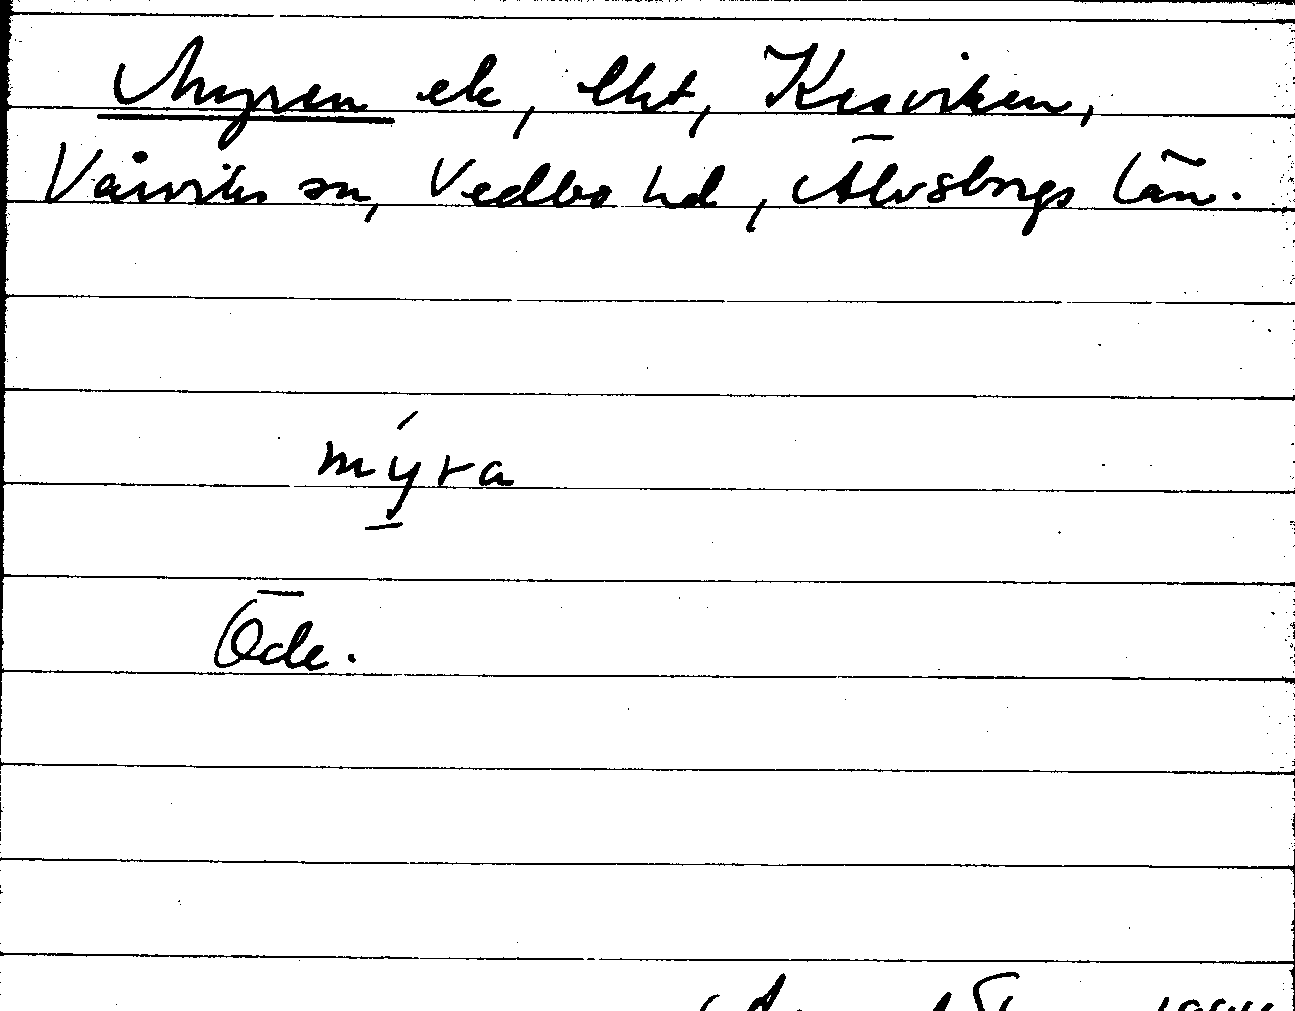 Myren ek, lht, Kasviken,
Vårviks sn, Vedbo hd, Älvsborgs län.
mýra
Öde.